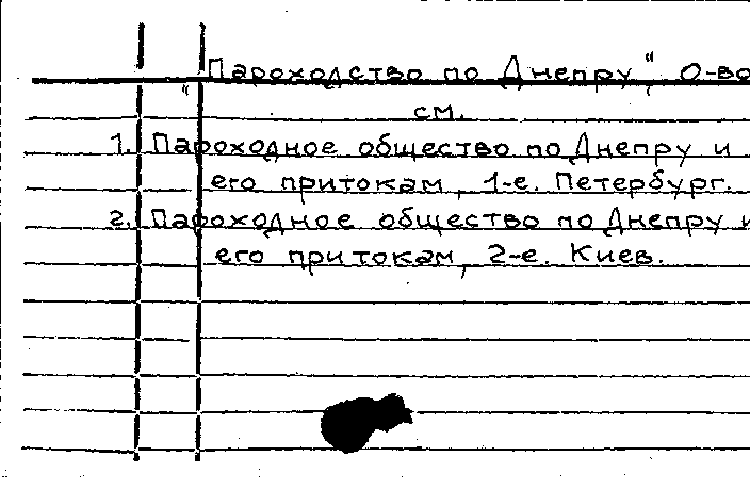 "Пароходство по Днепру", О-во
см.
1. Пароходное общество по Днепру и
его притокам, 1-е. Петербург.
2. Пароходное общество по Днепру и
его притокам, 2-е. Киев.